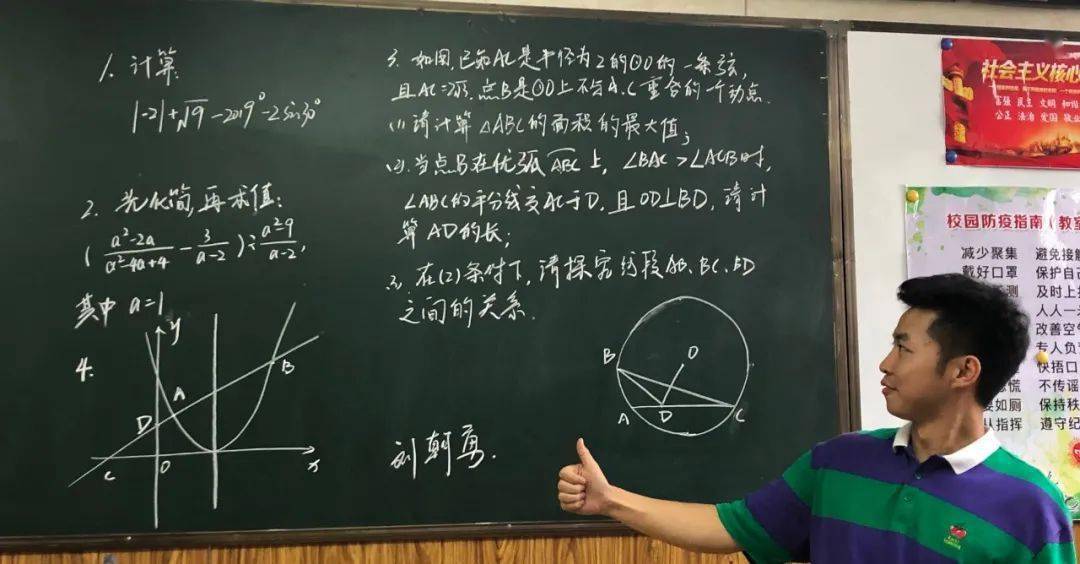 1. 计算:
|-2|+√9-2019⁰-2sin30°
2. 先化简,再求值:
(a²-2a/a²-4a+4 - 3/a-2)÷a²-9/a-2,
其中 a=1
4.
y
A
B
D
C
O
x
3. 如图,已知AC是半径为2的⊙O的一条弦,
且AC=2√3,点B是⊙O上不与A、C重合的一个动点.
(1)请计算△ABC的面积的最大值;
(2)当点B在优弧ABC上,∠BAC>∠ACB时,
∠ABC的平分线交AC于D,且OD⊥BD,请计
算AD的长;
(3)在(2)条件下,请探究线段AB、BC、BD
之间的关系.
B
O
A
D
C
社会主义核心
富强 民主 文明 和谐
公正 法治 爱国 敬业
校园防疫指南(教室
减少聚集 避免接触
戴好口罩 保护自己
测 及时上
人人一
改善空气
专人负
快捂口
慌 不传谣
如厕 保持秩
从指挥 遵守纪